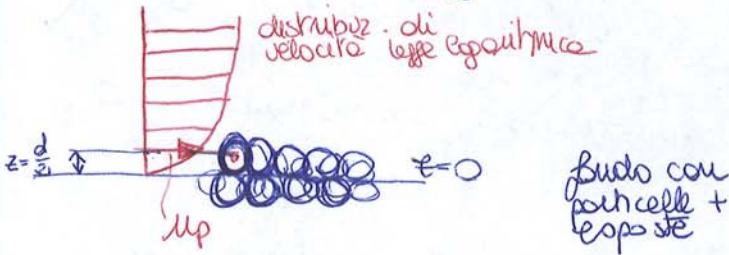 distribuz. di
velocità legge logaritmica
z = d/2
z = 0
fondo con
particelle +
esposte
up